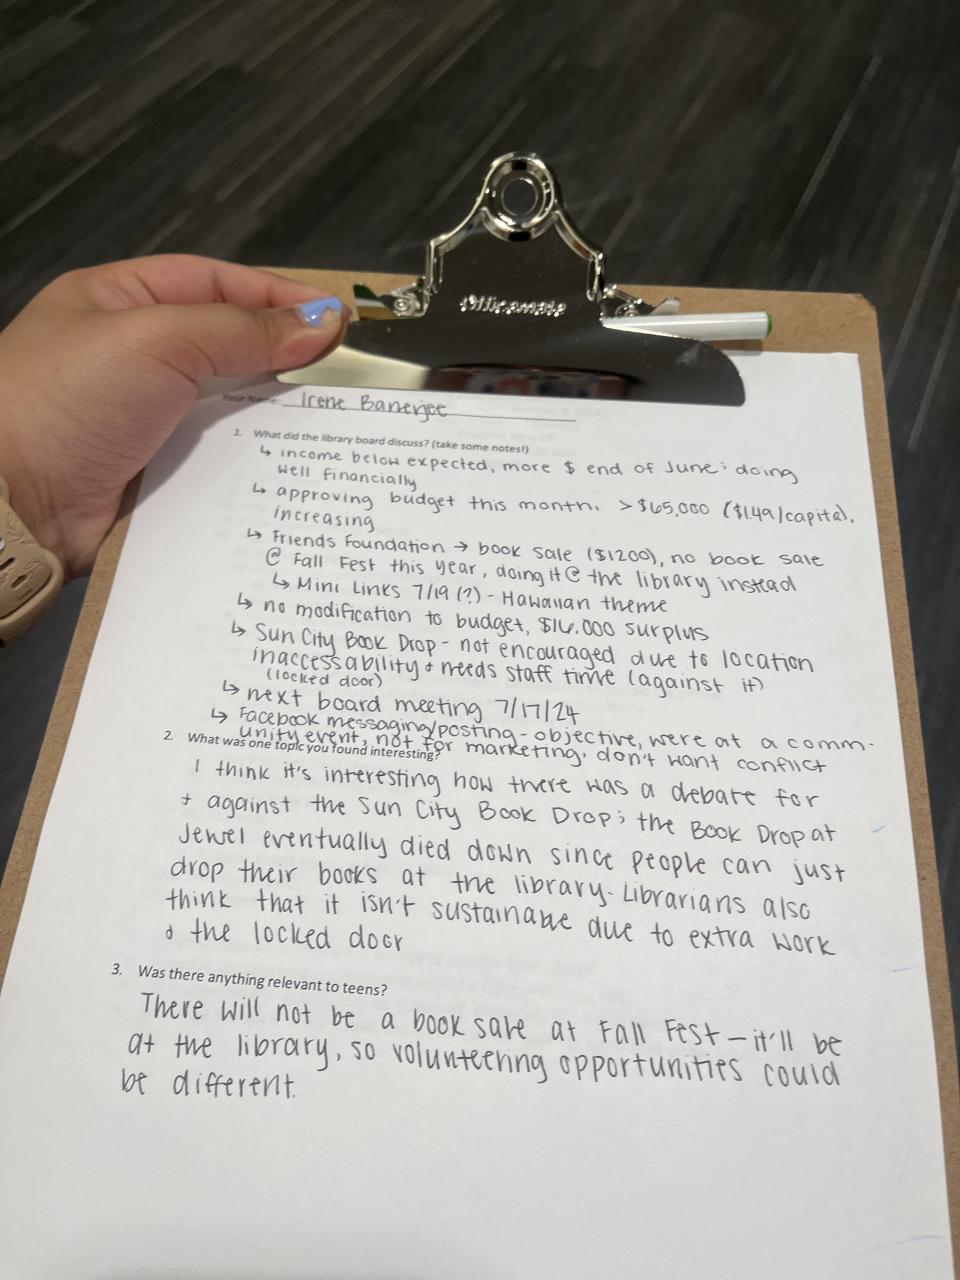 Officemate
Your Name: Irene Banerjee
1. What did the library board discuss? (take some notes!)
↳ income below expected, more $ end of June; doing
well financially
↳ approving budget this month. >$65,000 ($1.49/capita).
increasing
↳ Friends Foundation → book sale ($1200), no book sale
@ Fall Fest this year, doing it @ the library instead
↳ Mini Links 7/19 (?) - Hawaiian theme
↳ no modification to budget, $16.000 surplus
↳ Sun City Book Drop - not encouraged due to location
inaccessability + needs staff time (against it)
(locked door)
↳ next board meeting 7/17/24
↳ Facebook messaging/posting - objective, were at a comm-
unity event, not for marketing, don't want conflict
2. What was one topic you found interesting?
I think it's interesting how there was a debate for
+ against the Sun City Book Drop; the Book Drop at
Jewel eventually died down since people can just
drop their books at the library. Librarians also
think that it isn't sustainable due to extra work
& the locked door
3. Was there anything relevant to teens?
There will not be a book sale at Fall Fest — it'll be
at the library, so volunteering opportunities could
be different.